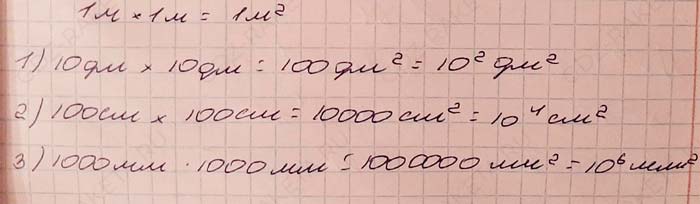 1м × 1м = 1м²
1) 10дм × 10дм = 100дм² = 10² дм²
2) 100см × 100см = 10000см² = 10⁴ см²
3) 1000мм · 1000мм = 1000000 мм² = 10⁶ мм²